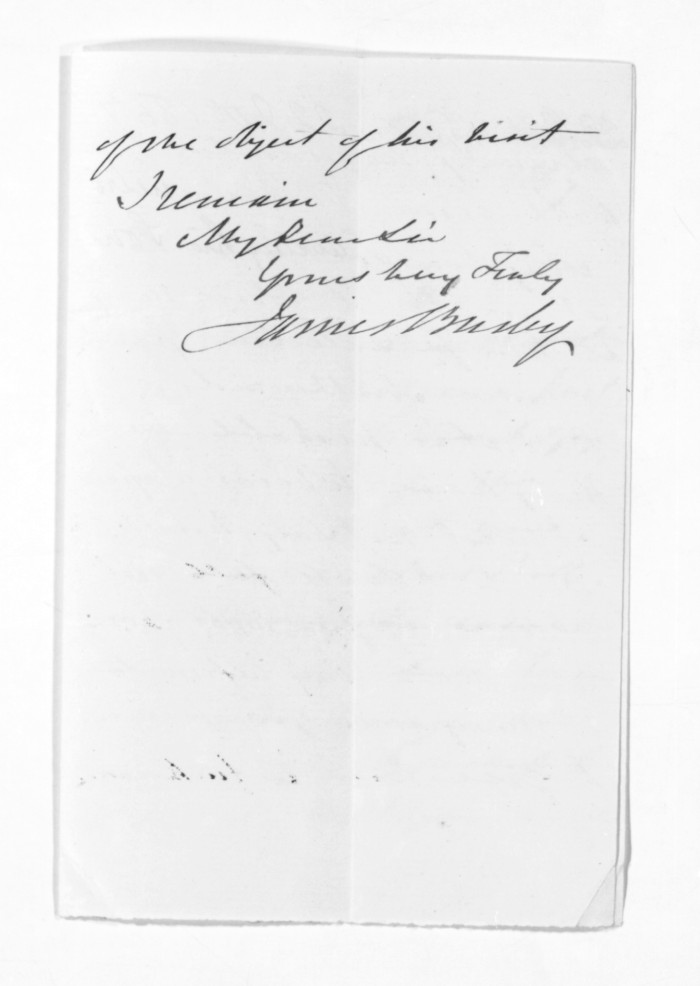 of the object of his visit
I remain
My Dear Sir
Yours very Truly
James Busby